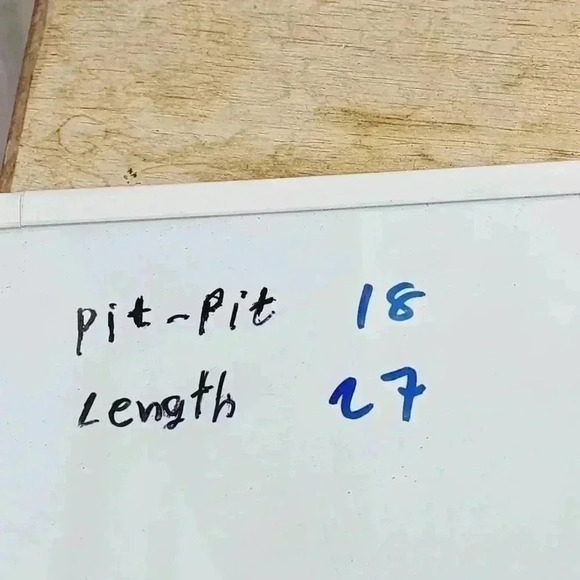 pit-pit 18
Length 27